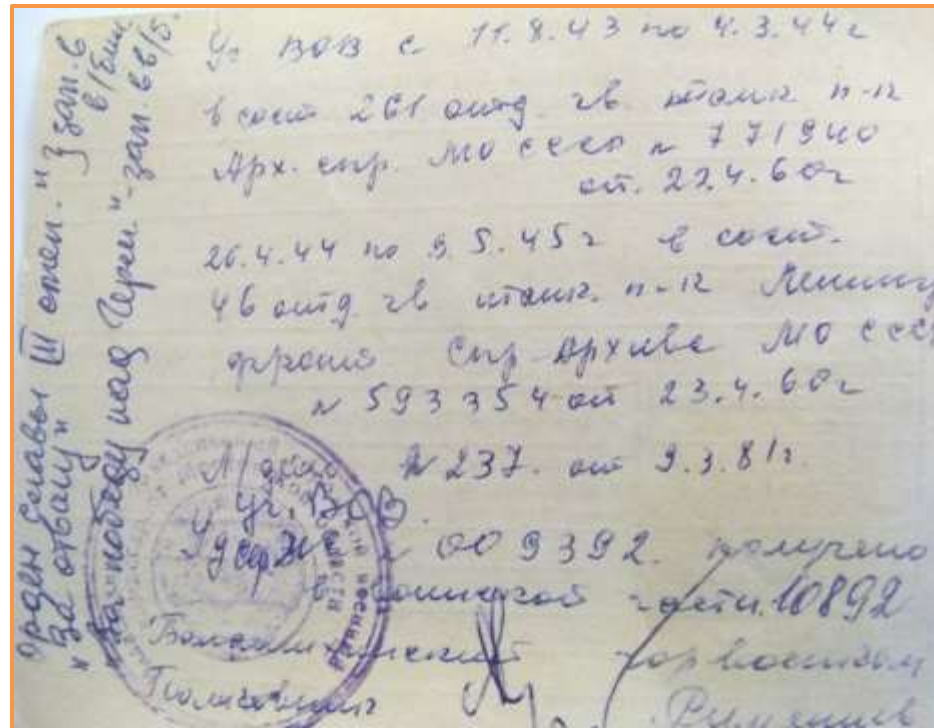 Уч ВОВ с 11.8.43 по 4.3.44г
в сост 261 отд гв танк п-к
Арх. спр. МО СССР № 771940
от. 22.4.60г
26.4.44 по 9.5.45г в сост.
46 отд гв танк. п-к Ленинг
фронта Спр Архива МО СССР
№ 593354 от 23.4.60г
Л/дело № 237. от 9.3.81г.
Уч. ВОВ.
Удост № 009392. получено
в воинской части. 10892
горвоенком
Полковник
Орден Славы III степ. "
"За отвагу"
"За победу над Герм." зап. в в/б.
} зап. в
в/бил.